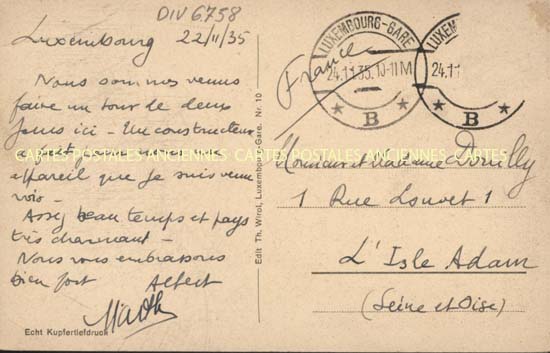 DIV 6758
Luxembourg 22/11/35
Nous sommes venus
faire un tour de deux
jours ici - Un constructeur
a fait pour nous un
appareil que je suis venu
voir -
Assez beau temps et pays
très charmant -
Nous vous embrassons
bien fort Albert
Echt Kupfertiefdruck
Edit Th. Wirol, Luxembourg-Gare. Nr. 10
CARTES POSTALES ANCIENNES CARTES POSTALES ANCIENNES CARTES
LUXEMBOURG-GARE
24.11.35.10-11M
B
LUXEM
24.11
B
France
Monsieur et Madame Douilly
1 Rue Louvet 1
L'Isle Adam
(Seine et Oise)